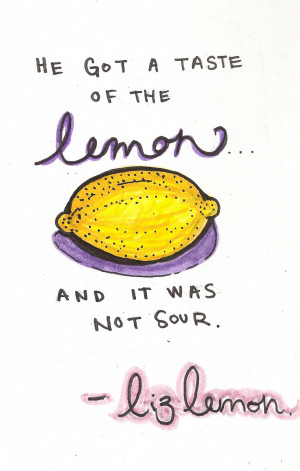 HE GOT A TASTE
OF THE
lemon...
AND IT WAS
NOT SOUR.
- liz lemon.